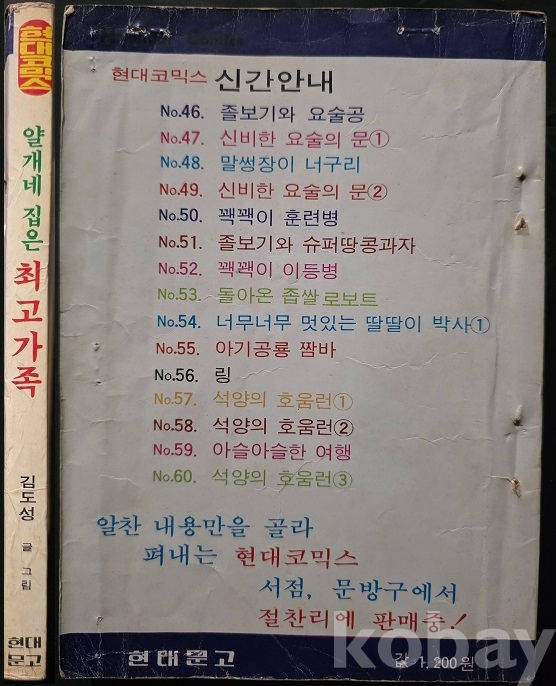 현대코믹스
얄개네 집은
최고가족
김도성
글 그림
현대
문고
현대코믹스 신간안내
No.46. 졸보기와 요술공
No.47. 신비한 요술의 문①
No.48. 말썽장이 너구리
No.49. 신비한 요술의 문②
No.50. 꽥꽥이 훈련병
No.51. 졸보기와 슈퍼땅콩과자
No.52. 꽥꽥이 이등병
No.53. 돌아온 좁쌀로보트
No.54. 너무너무 멋있는 딸딸이 박사①
No.55. 아기공룡 짬바
No.56. 링
No.57. 석양의 호움런①
No.58. 석양의 호움런②
No.59. 아슬아슬한 여행
No.60. 석양의 호움런③
알찬 내용만을 골라
펴내는 현대코믹스
서점, 문방구에서
절찬리에 판매중!
현대문고
값 1,200원
kobay